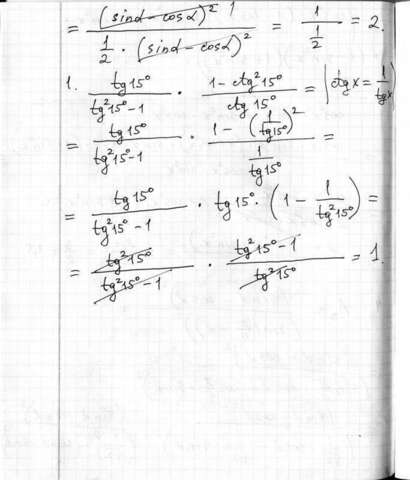 = (sinα - cosα)² 1 / 1/2 · (sinα - cosα)² = 1 / 1/2 = 2.
1. tg 15° / tg²15° - 1 · 1 - ctg²15° / ctg 15° = | ctg x = 1 / tg x |
= tg 15° / tg²15° - 1 · 1 - (1 / tg15°)² / 1 / tg 15° =
= tg 15° / tg²15° - 1 · tg 15° · (1 - 1 / tg²15°) =
= tg²15° / tg²15° - 1 · tg²15° - 1 / tg²15° = 1.